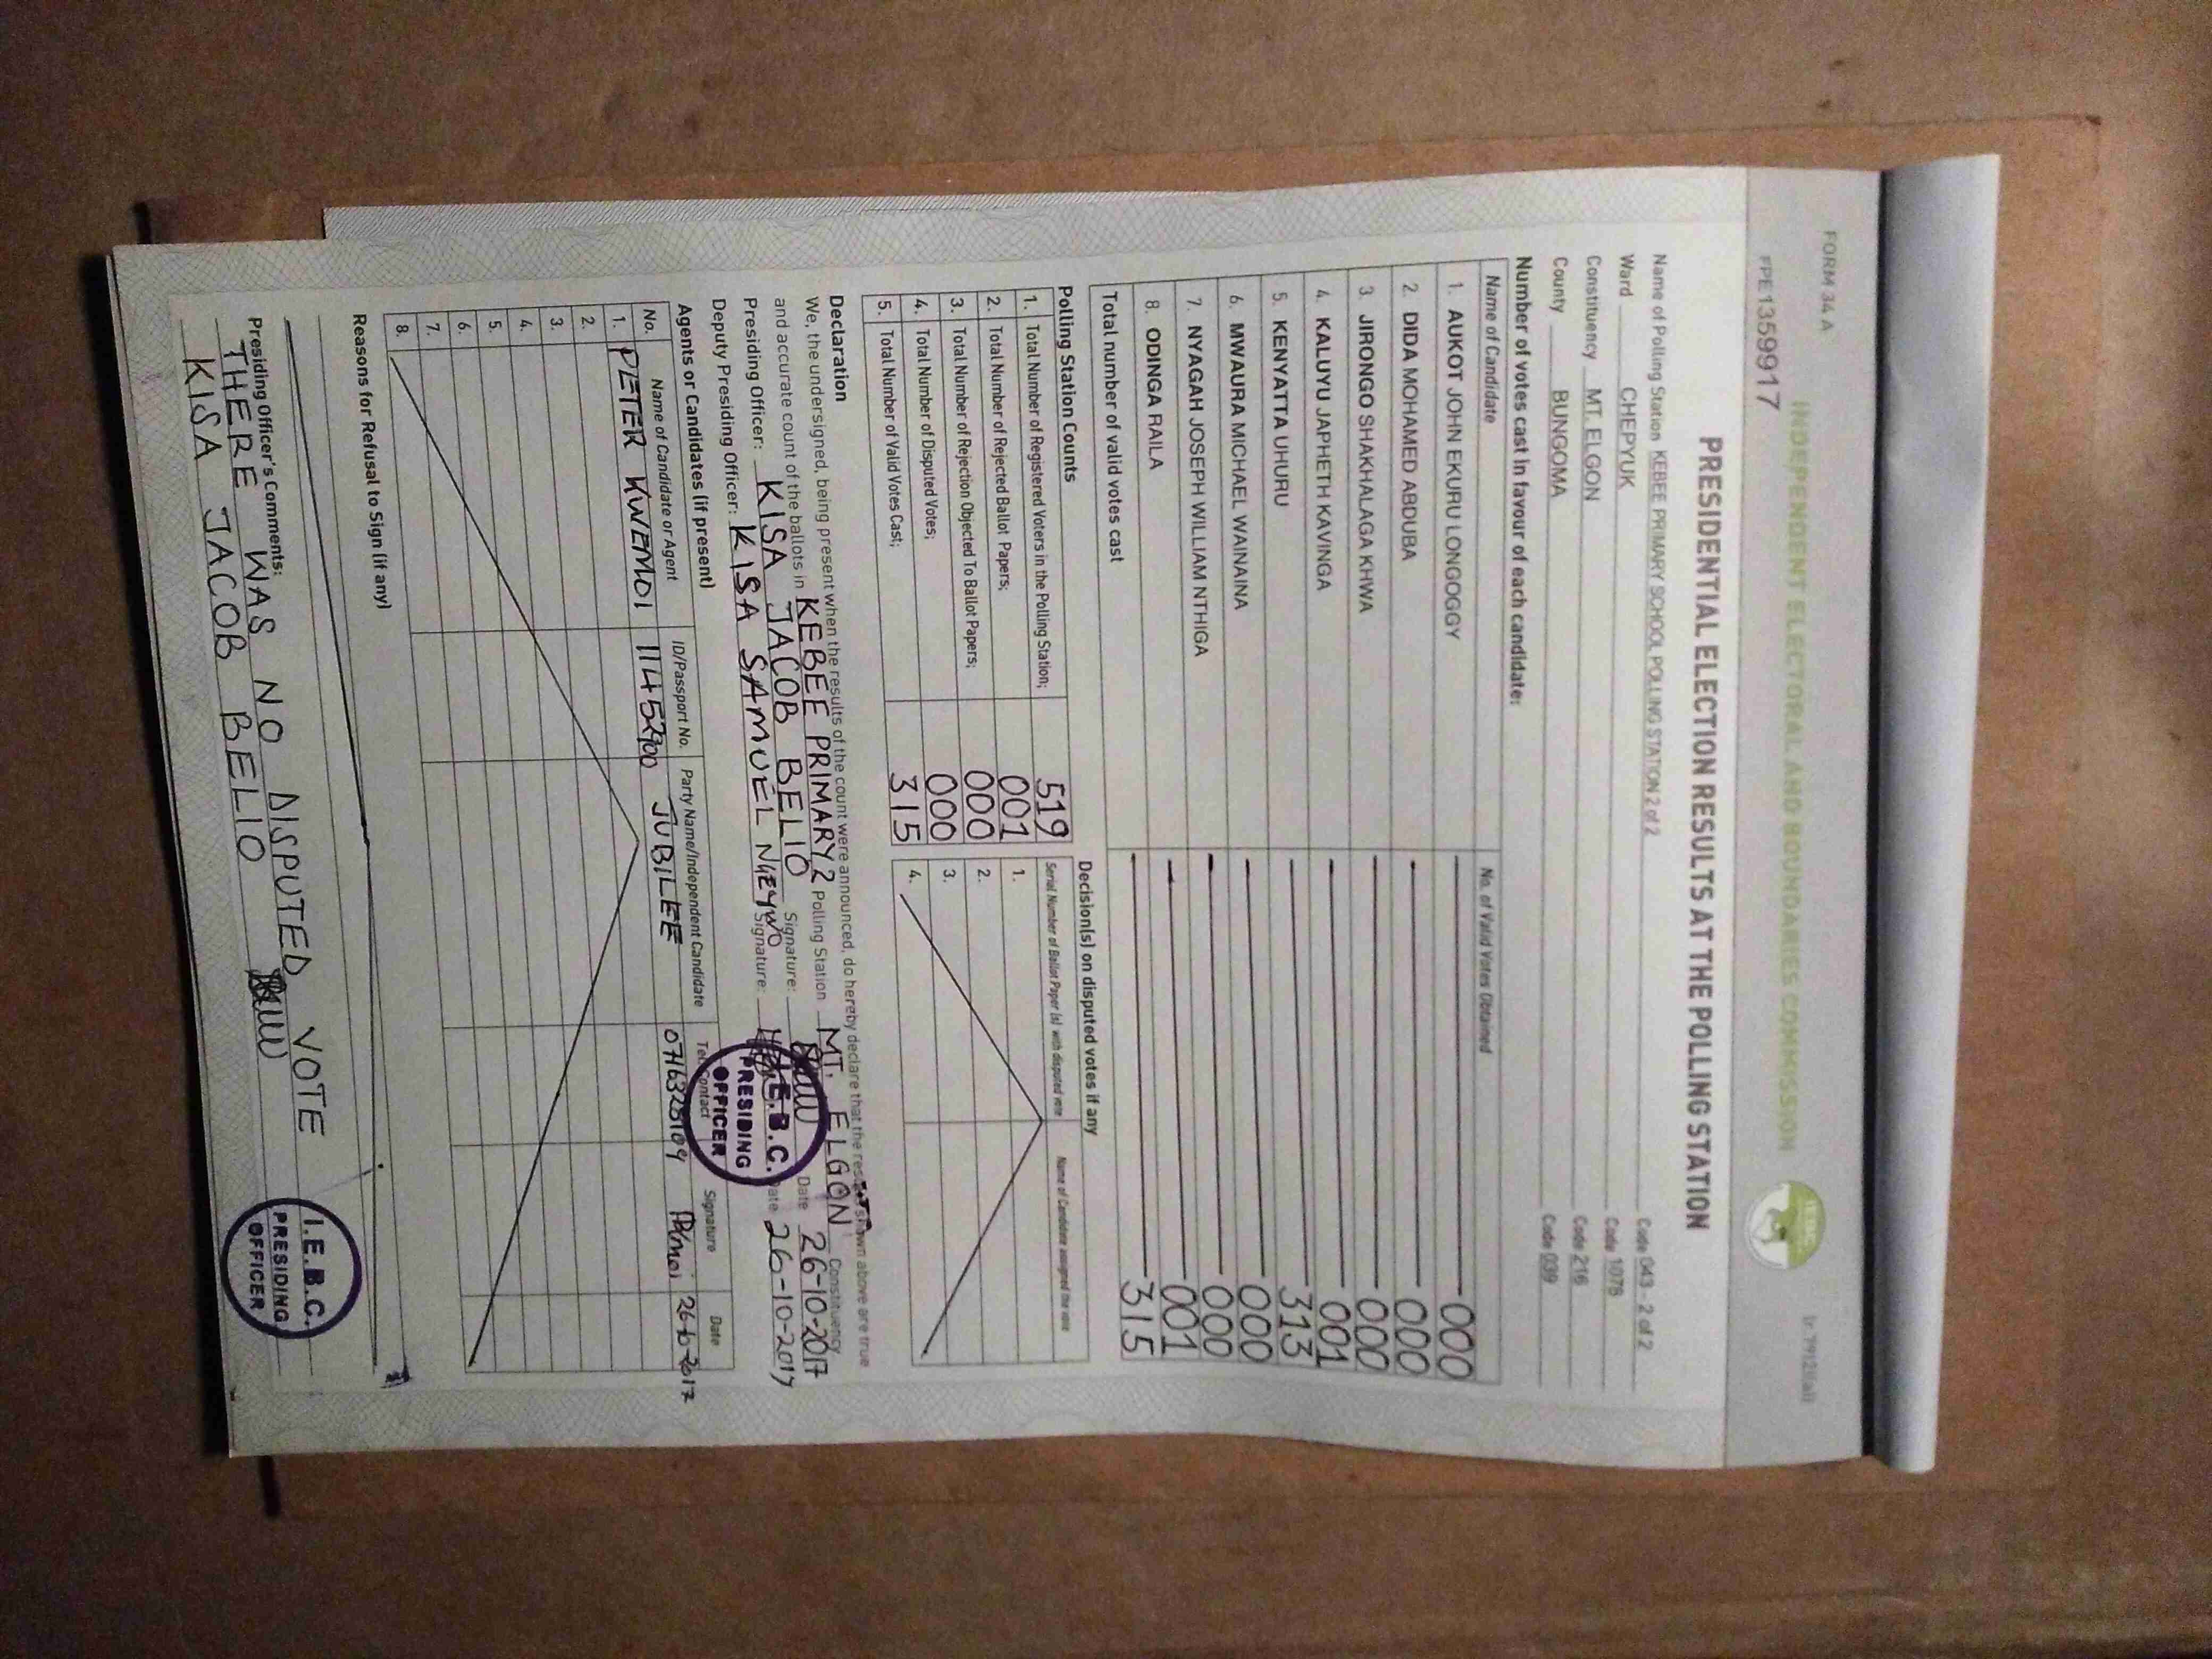 FORM 34 A
INDEPENDENT ELECTORAL AND BOUNDARIES COMMISSION
FPE1359917
PRESIDENTIAL ELECTION RESULTS AT THE POLLING STATION
Name of Polling Station KEBEE PRIMARY SCHOOL POLLING STATION 2 of 2 Code 043 - 2 of 2
Ward CHEPYUK Code 1078
Constituency MT. ELGON Code 216
County BUNGOMA Code 039
Number of votes cast in favour of each candidate:
Name of Candidate No. of Valid Votes Obtained
1. AUKOT JOHN EKURU LONGOGGY 000
2. DIDA MOHAMED ABDUBA 000
3. JIRONGO SHAKHALAGA KHWA 000
4. KALUYU JAPHETH KAVINGA 001
5. KENYATTA UHURU 313
6. MWAURA MICHAEL WAINAINA 000
7. NYAGAH JOSEPH WILLIAM NTHIGA 000
8. ODINGA RAILA 001
Total number of valid votes cast 315
Polling Station Counts
1. Total Number of Registered Voters in the Polling Station; 519
2. Total Number of Rejected Ballot Papers; 001
3. Total Number of Rejection Objected To Ballot Papers; 000
4. Total Number of Disputed Votes; 000
5. Total Number of Valid Votes Cast; 315
Decision(s) on disputed votes if any
Serial Number of Ballot Paper (s) with disputed vote Name of Candidate assigned the vote
1.
2.
3.
4.
Declaration
We, the undersigned, being present when the results of the count were announced, do hereby declare that the results shown above are true
and accurate count of the ballots in KEBEE PRIMARY 2 Polling Station MT. ELGON Constituency
Presiding Officer: KISA JACOB BELIO Signature: Date 26-10-2017
Deputy Presiding Officer: KISA SAMUEL Signature: Date 26-10-2017
Agents or Candidates (if present)
No. Name of Candidate or Agent ID/Passport No. Party Name/Independent Candidate Tel. Contact Signature Date
1. PETER KWEMOI 11452900 JUBILEE 0716328109 26-10-2017
2.
3.
4.
5.
6.
7.
8.
I.E.B.C.
PRESIDING
OFFICER
Reasons for Refusal to Sign (if any)
Presiding Officer's Comments:
THERE WAS NO DISPUTED VOTE
KISA JACOB BELIO
I.E.B.C.
PRESIDING
OFFICER